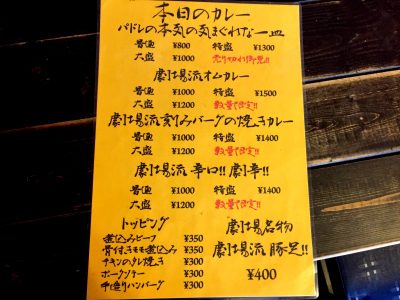 本日のカレー
パドレの本気の気まぐれな一皿
普通 ¥800 特盛 ¥1300
大盛 ¥1000 売り切れ御免!!
劇場流オムカレー
普通 ¥1000 特盛 ¥1500
大盛 ¥1200 数量限定!!
劇場流刻みバーグの焼きカレー
普通 ¥1000 特盛 ¥1400
大盛 ¥1200 数量限定!!
劇場流 辛口!! 劇辛!!
普通 ¥1000 特盛 ¥1400
大盛 ¥1200 数量限定!!
トッピング
煮込みビーフ ¥350
骨付きモモ煮込み ¥350
チキンのタレ焼き ¥300
ポークソテー ¥300
手造りハンバーグ ¥300
劇場名物
劇場流 豚足!!
¥400